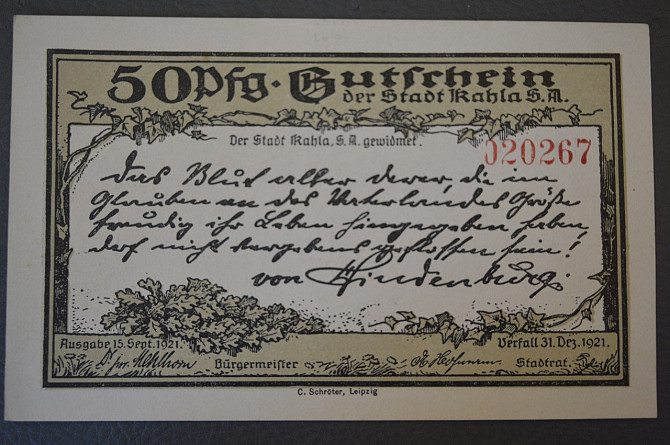 50 Pfg. Gutschein
der Stadt Kahla S.A.
Der Stadt Kahla, S.A. gewidmet.
020267
Das Blut aller derer, die im
Glauben an des Vaterlandes Größe
freudig ihr Leben hingegeben haben,
darf nicht vergebens geflossen sein!
von Hindenburg.
Ausgabe 15. Sept. 1921.
Verfall 31. Dez. 1921.
Bürgermeister
Stadtrat.
C. Schröter, Leipzig